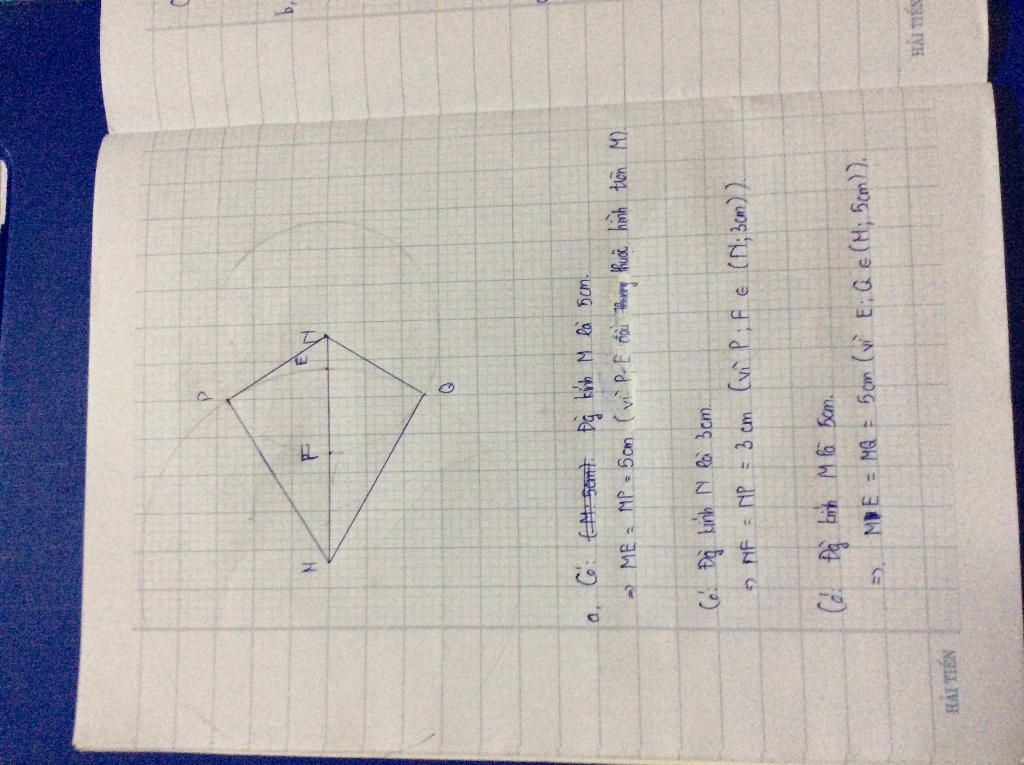 P
M
E
F
N
Q
a, Có: (M; 5cm). Đg kính M là 5cm.
=> ME = MP = 5cm (vì P, E thuộc hình tròn M).
Có: Đg kính N là 3cm.
=> NF = NP = 3 cm (vì P; F ∈ (N; 3cm)).
Có: Đg kính M là 5cm.
=>. ME = MQ = 5cm (vì E; Q ∈ (M; 5cm)).
b,
HẢI TIẾN
HẢI TIẾN